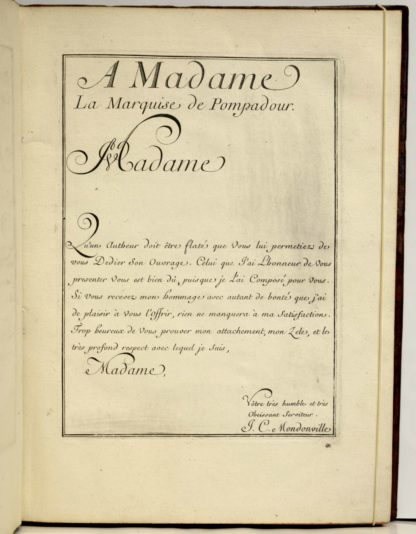 A Madame
La Marquise de Pompadour.
Madame
Qu'un Autheur doit être flaté que Vous lui permetiez de
vous Dedier Son Ouvrage. Celui que J'ai L'honneur de Vous
presenter Vous est bien dû, puisque je L'ai Composé pour Vous.
Si Vous recevez mon hommage avec autant de bonté que j'ai
de plaisir à Vous l'offrir, rien ne manquera à ma Satisfaction.
Trop heureux de Vous prouver mon attachement, mon Zele, et le
très profond respect avec lequel je Suis,
Madame,
Vôtre très humble et très
Obeissant Serviteur.
J. C. Mondonville